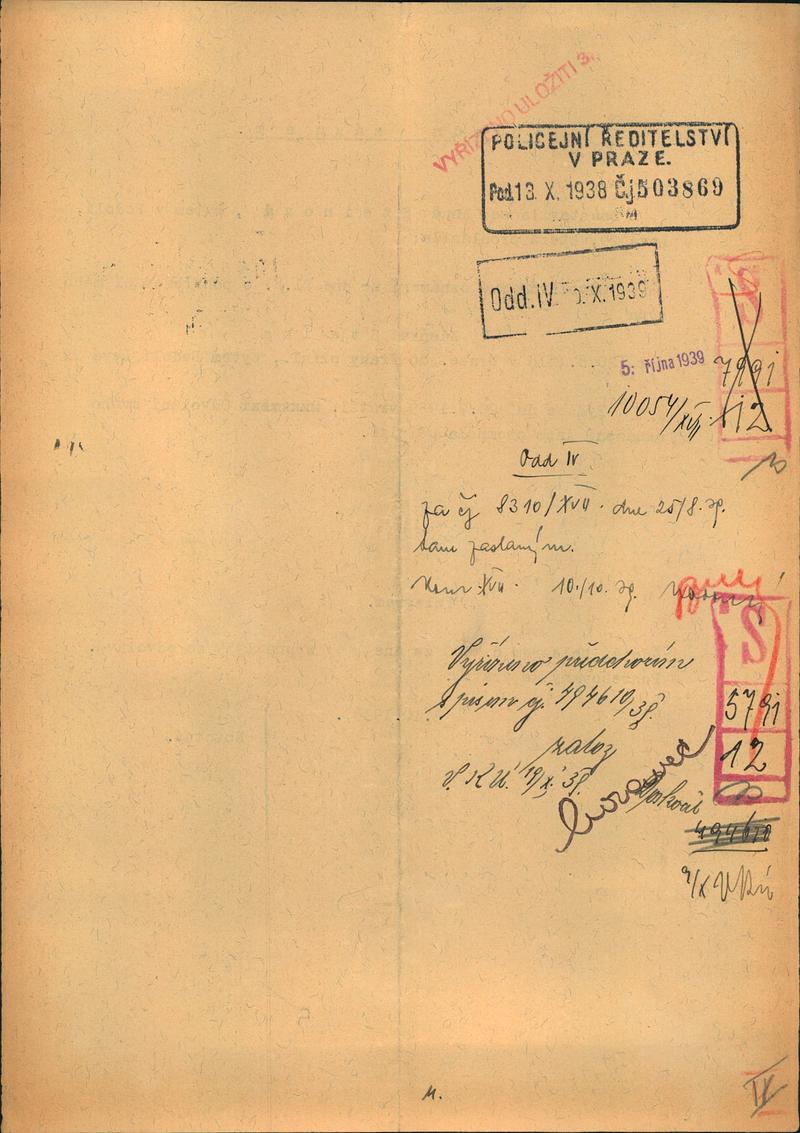 VYŘÍZENO ULOŽITI 3.
POLICEJNÍ ŘEDITELSTVÍ
V PRAZE.
Pod. 13. X. 1938 Čj 503869
Odd. IV. X. 1939
5. října 1939
7991
10054/XVII. 12
Odd IV
za čj 8310/XVII. dne 25/8. 
tam zaslaným.
XVII. 10./10.
S
Vyřízeno předchozím
spisem čj. 494610/39.
5791
založ
12
V.K.Ú. 19/X. 39.
494610
9/X
M.
IV